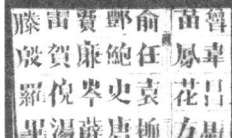 魯韋昌馬
苗鳳花方
俞任袁柳
酆鮑史唐
費廉岑薛
雷賀倪湯
滕殷羅畢